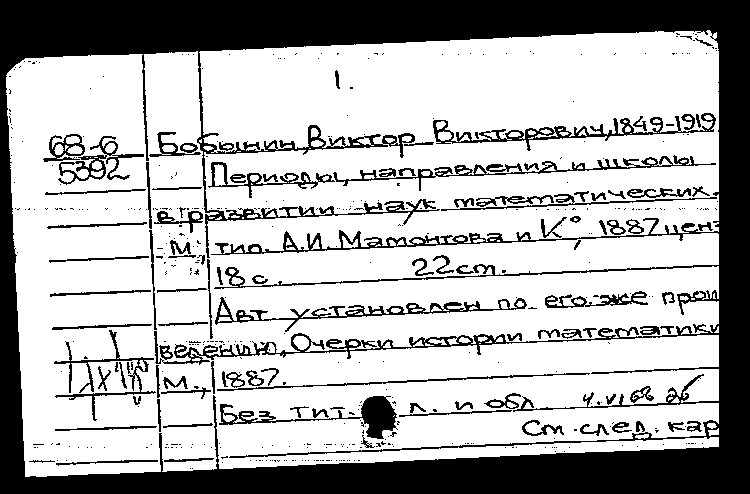 1.
68-6 Бобынин, Виктор Викторович, 1849-1919
5392 Периоды, направления и школы
в развитии наук математических.
М., тип. А.И. Мамонтова и К°, 1887 ценз
18 с. 22 см.
Авт установлен по его же прои
ведению, Очерки истории математики
М., 1887.
Без тит. л. и обл. 4.VI 68
См. след. кар